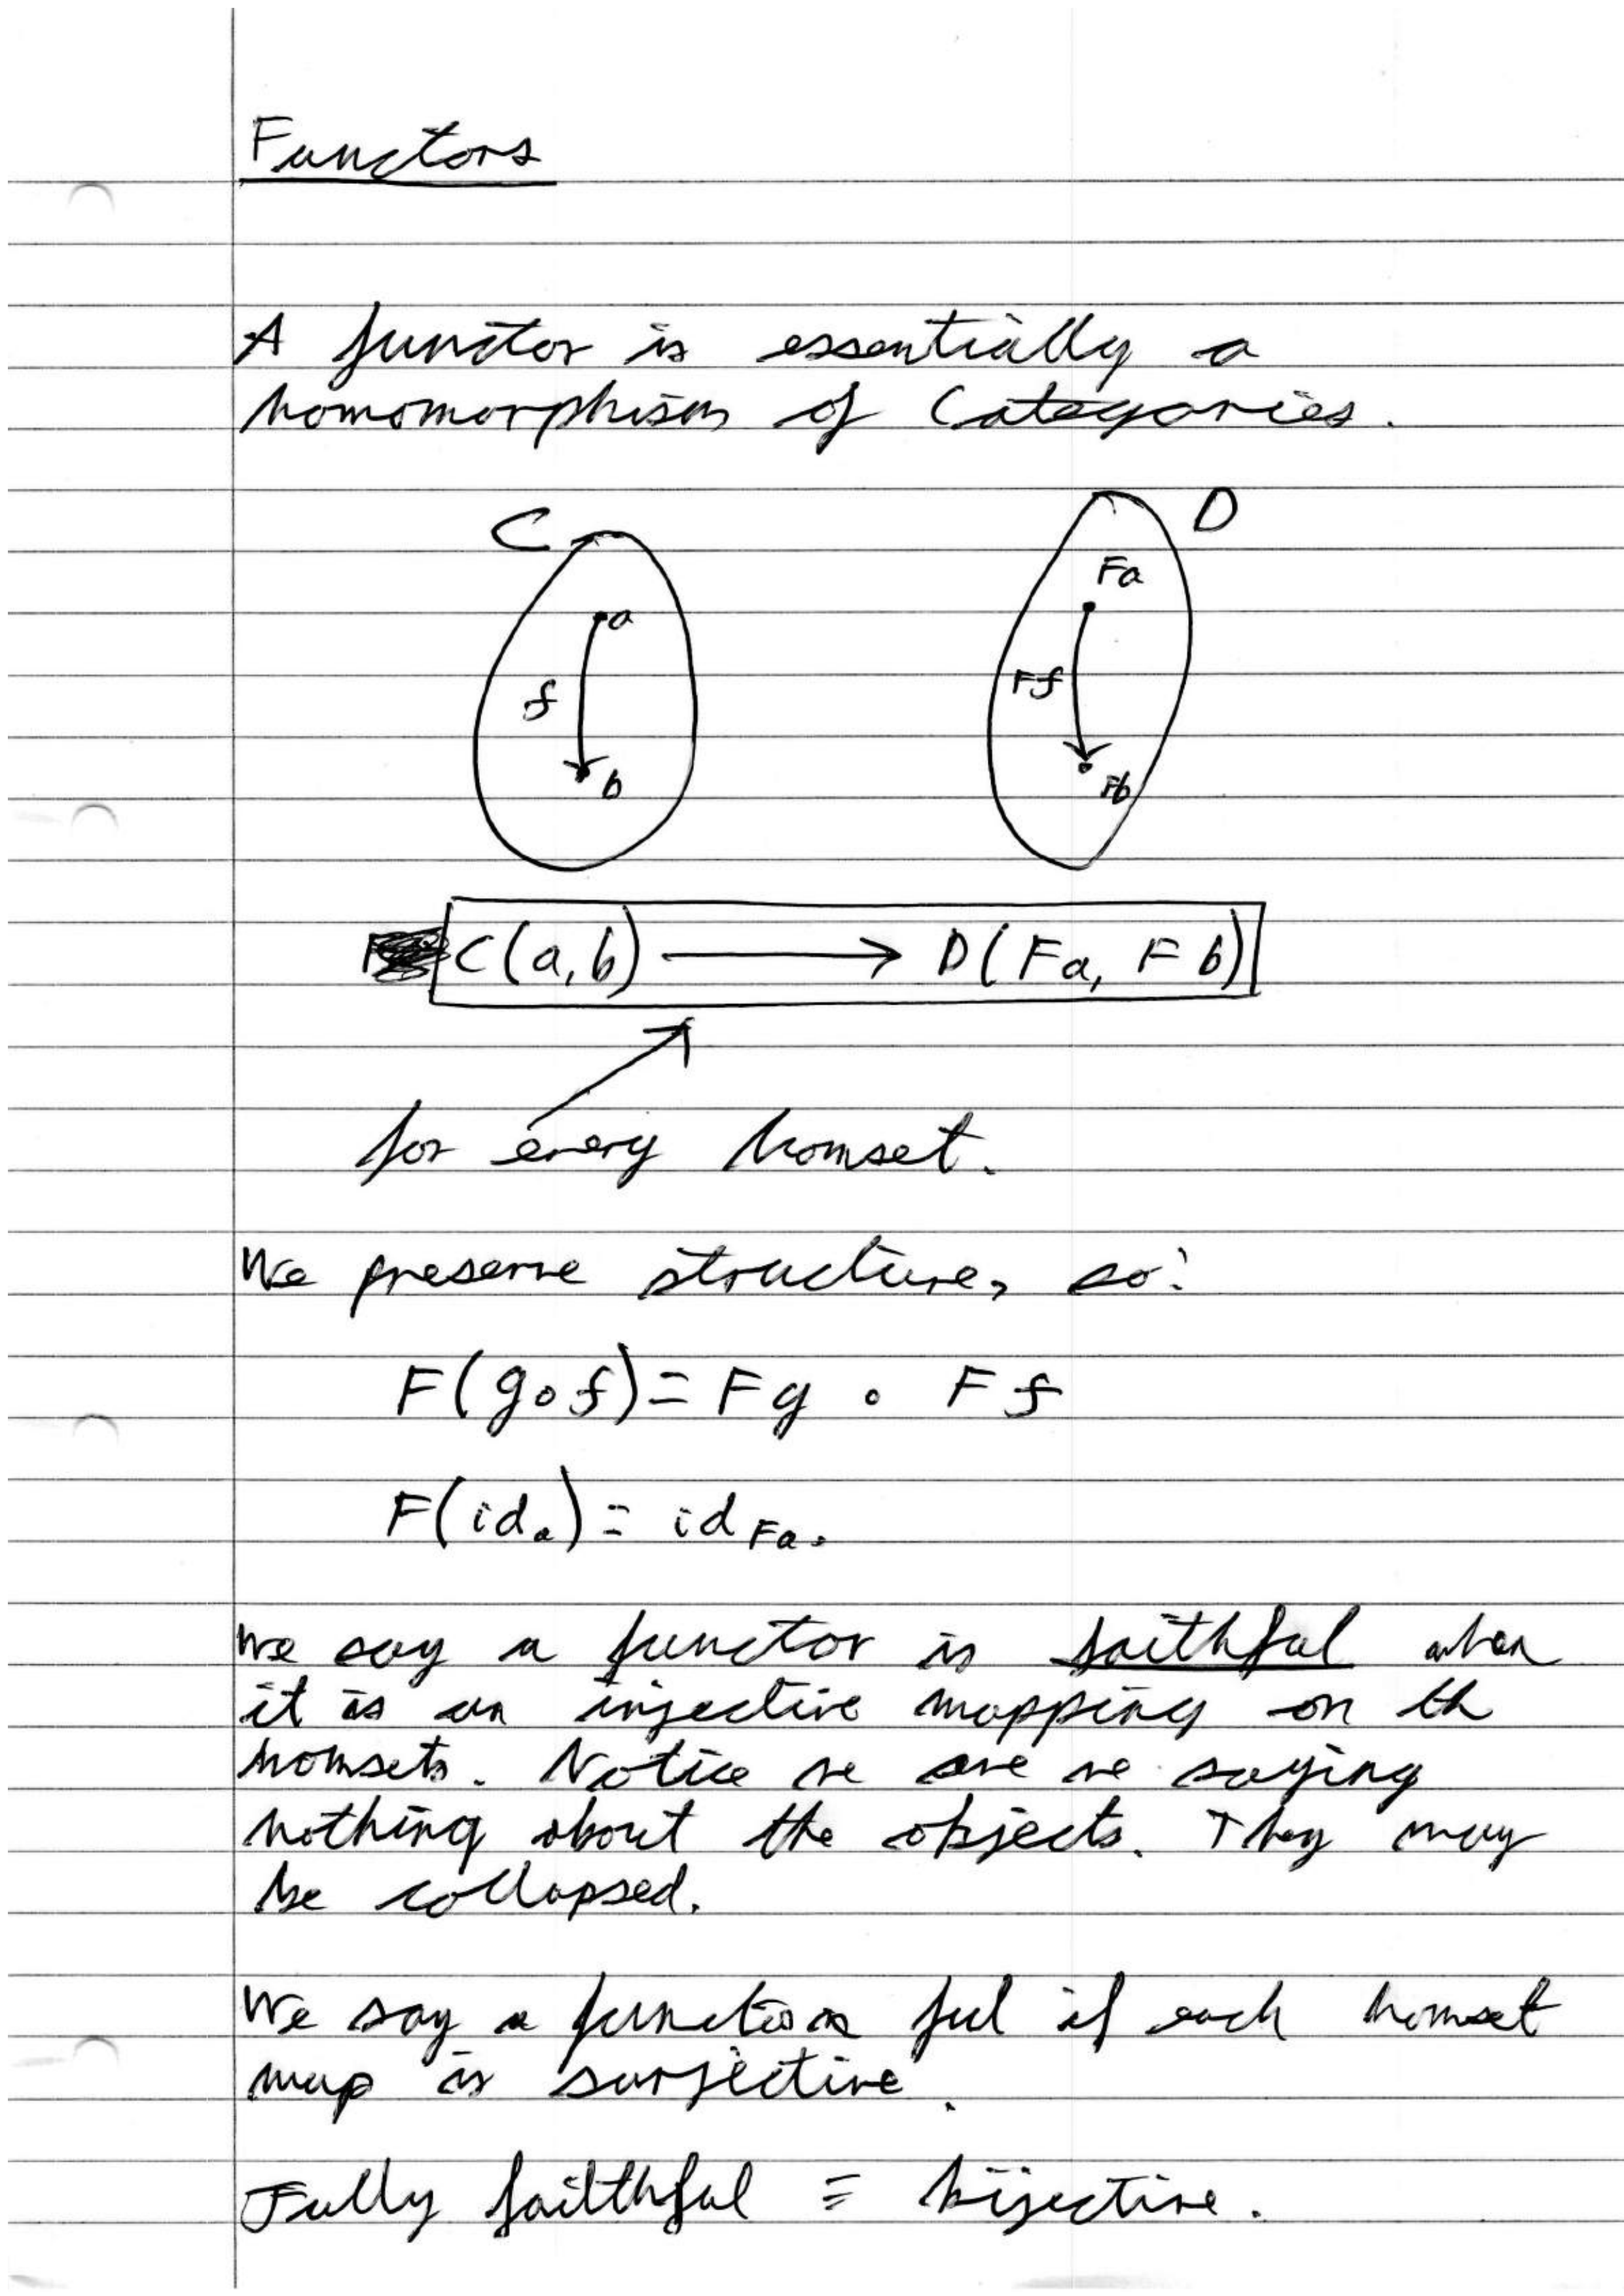 Functors
A functor is essentially a
homomorphism of Categories.
C D
a Fa
f Ff
b Fb
C(a,b) ⟶ D(Fa, Fb)
for every homset.
We preserve structure, so:
F(g∘f) = Fg ∘ Ff
F(id_a) = id_Fa.
We say a functor is faithful when
it is an injective mapping on th
homsets. Notice we are we saying
nothing about the objects. They may
be collapsed.
We say a function ful if each homset
map is surjective.
Fully faithful = bijective.